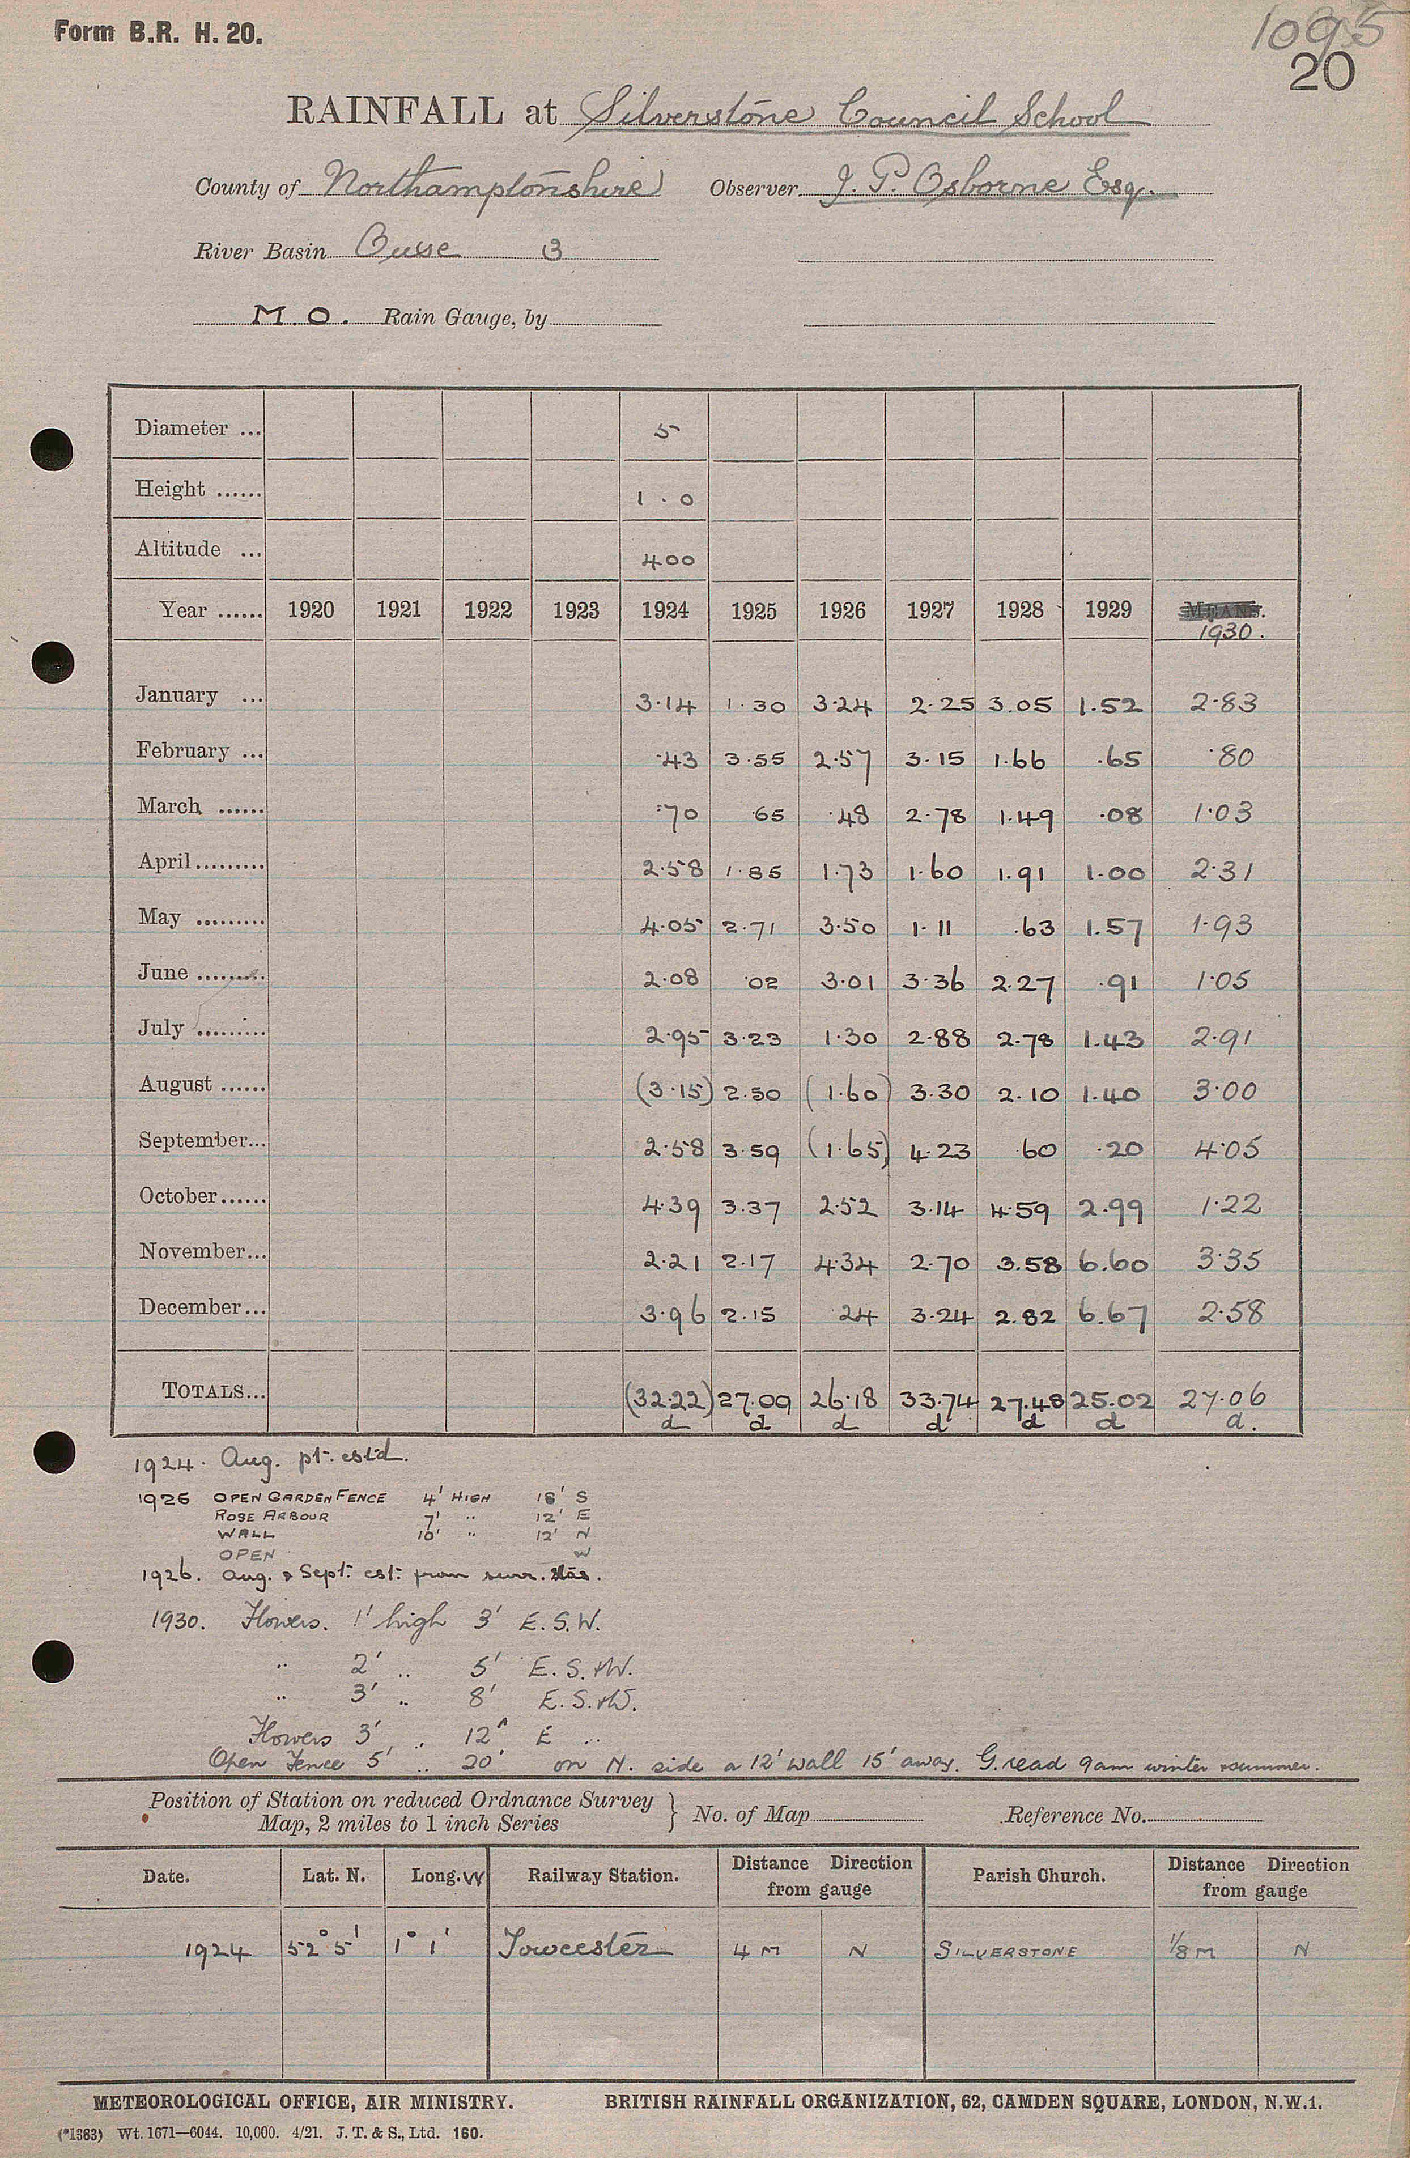 Form B.R. H. 20.
1095
20
RAINFALL at Silverstone Council School
County of Northamptonshire Observer J. P. Osborne Esq.
River Basin Ouse B
M.O. Rain Gauge, by
Diameter ... 5
Height ...... 1.0
Altitude ... 400
Year ...... 1920 1921 1922 1923 1924 1925 1926 1927 1928 1929 MEANS.
1930.
January ... 3.14 1.30 3.24 2.25 3.05 1.52 2.83
February ... .43 3.55 2.57 3.15 1.66 .65 .80
March ...... .70 65 .48 2.78 1.49 .08 1.03
April ......... 2.58 1.85 1.73 1.60 1.91 1.00 2.31
May ......... 4.05 2.71 3.50 1.11 .63 1.57 1.93
June ......... 2.08 .02 3.01 3.36 2.27 .91 1.05
July ......... 2.95 3.23 1.30 2.88 2.78 1.43 2.91
August ...... (3.15) 2.50 (1.60) 3.30 2.10 1.40 3.00
September... 2.58 3.59 (1.65) 4.23 .60 .20 4.05
October...... 4.39 3.37 2.52 3.14 4.59 2.99 1.22
November... 2.21 2.17 4.34 2.70 3.58 6.60 3.35
December... 3.96 2.15 .24 3.24 2.82 6.67 2.58
TOTALS... (32.22) 27.09 26.18 33.74 27.48 25.02 27.06
d d d d d d d.
1924. Aug. pt. estd.
1926 OPEN GARDEN FENCE 4' HIGH 18' S
ROSE ARBOUR 7' " 12' E
WALL 10' " 12' N
OPEN W
1926. Aug. & Sept. est. from surr. stas.
1930. Flowers. 1' high 3' E.S.W.
" 2' " 5' E.S.&W.
" 3' " 8' E.S.&W.
Flowers 3' " 12' E "
Open Fence 5' " 20' on N. side a 12' wall 15' away. G. read 9am winter & summer.
Position of Station on reduced Ordnance Survey Map, 2 miles to 1 inch Series } No. of Map Reference No.
Date. Lat. N. Long. W Railway Station. Distance Direction from gauge Parish Church. Distance Direction from gauge
1924 52° 5' 1° 1' Towcester 4 M N SILVERSTONE 1/8 M N
METEOROLOGICAL OFFICE, AIR MINISTRY. BRITISH RAINFALL ORGANIZATION, 62, CAMDEN SQUARE, LONDON, N.W.1.
(*1383) Wt. 1671—6044. 10,000. 4/21. J. T. & S., Ltd. 160.